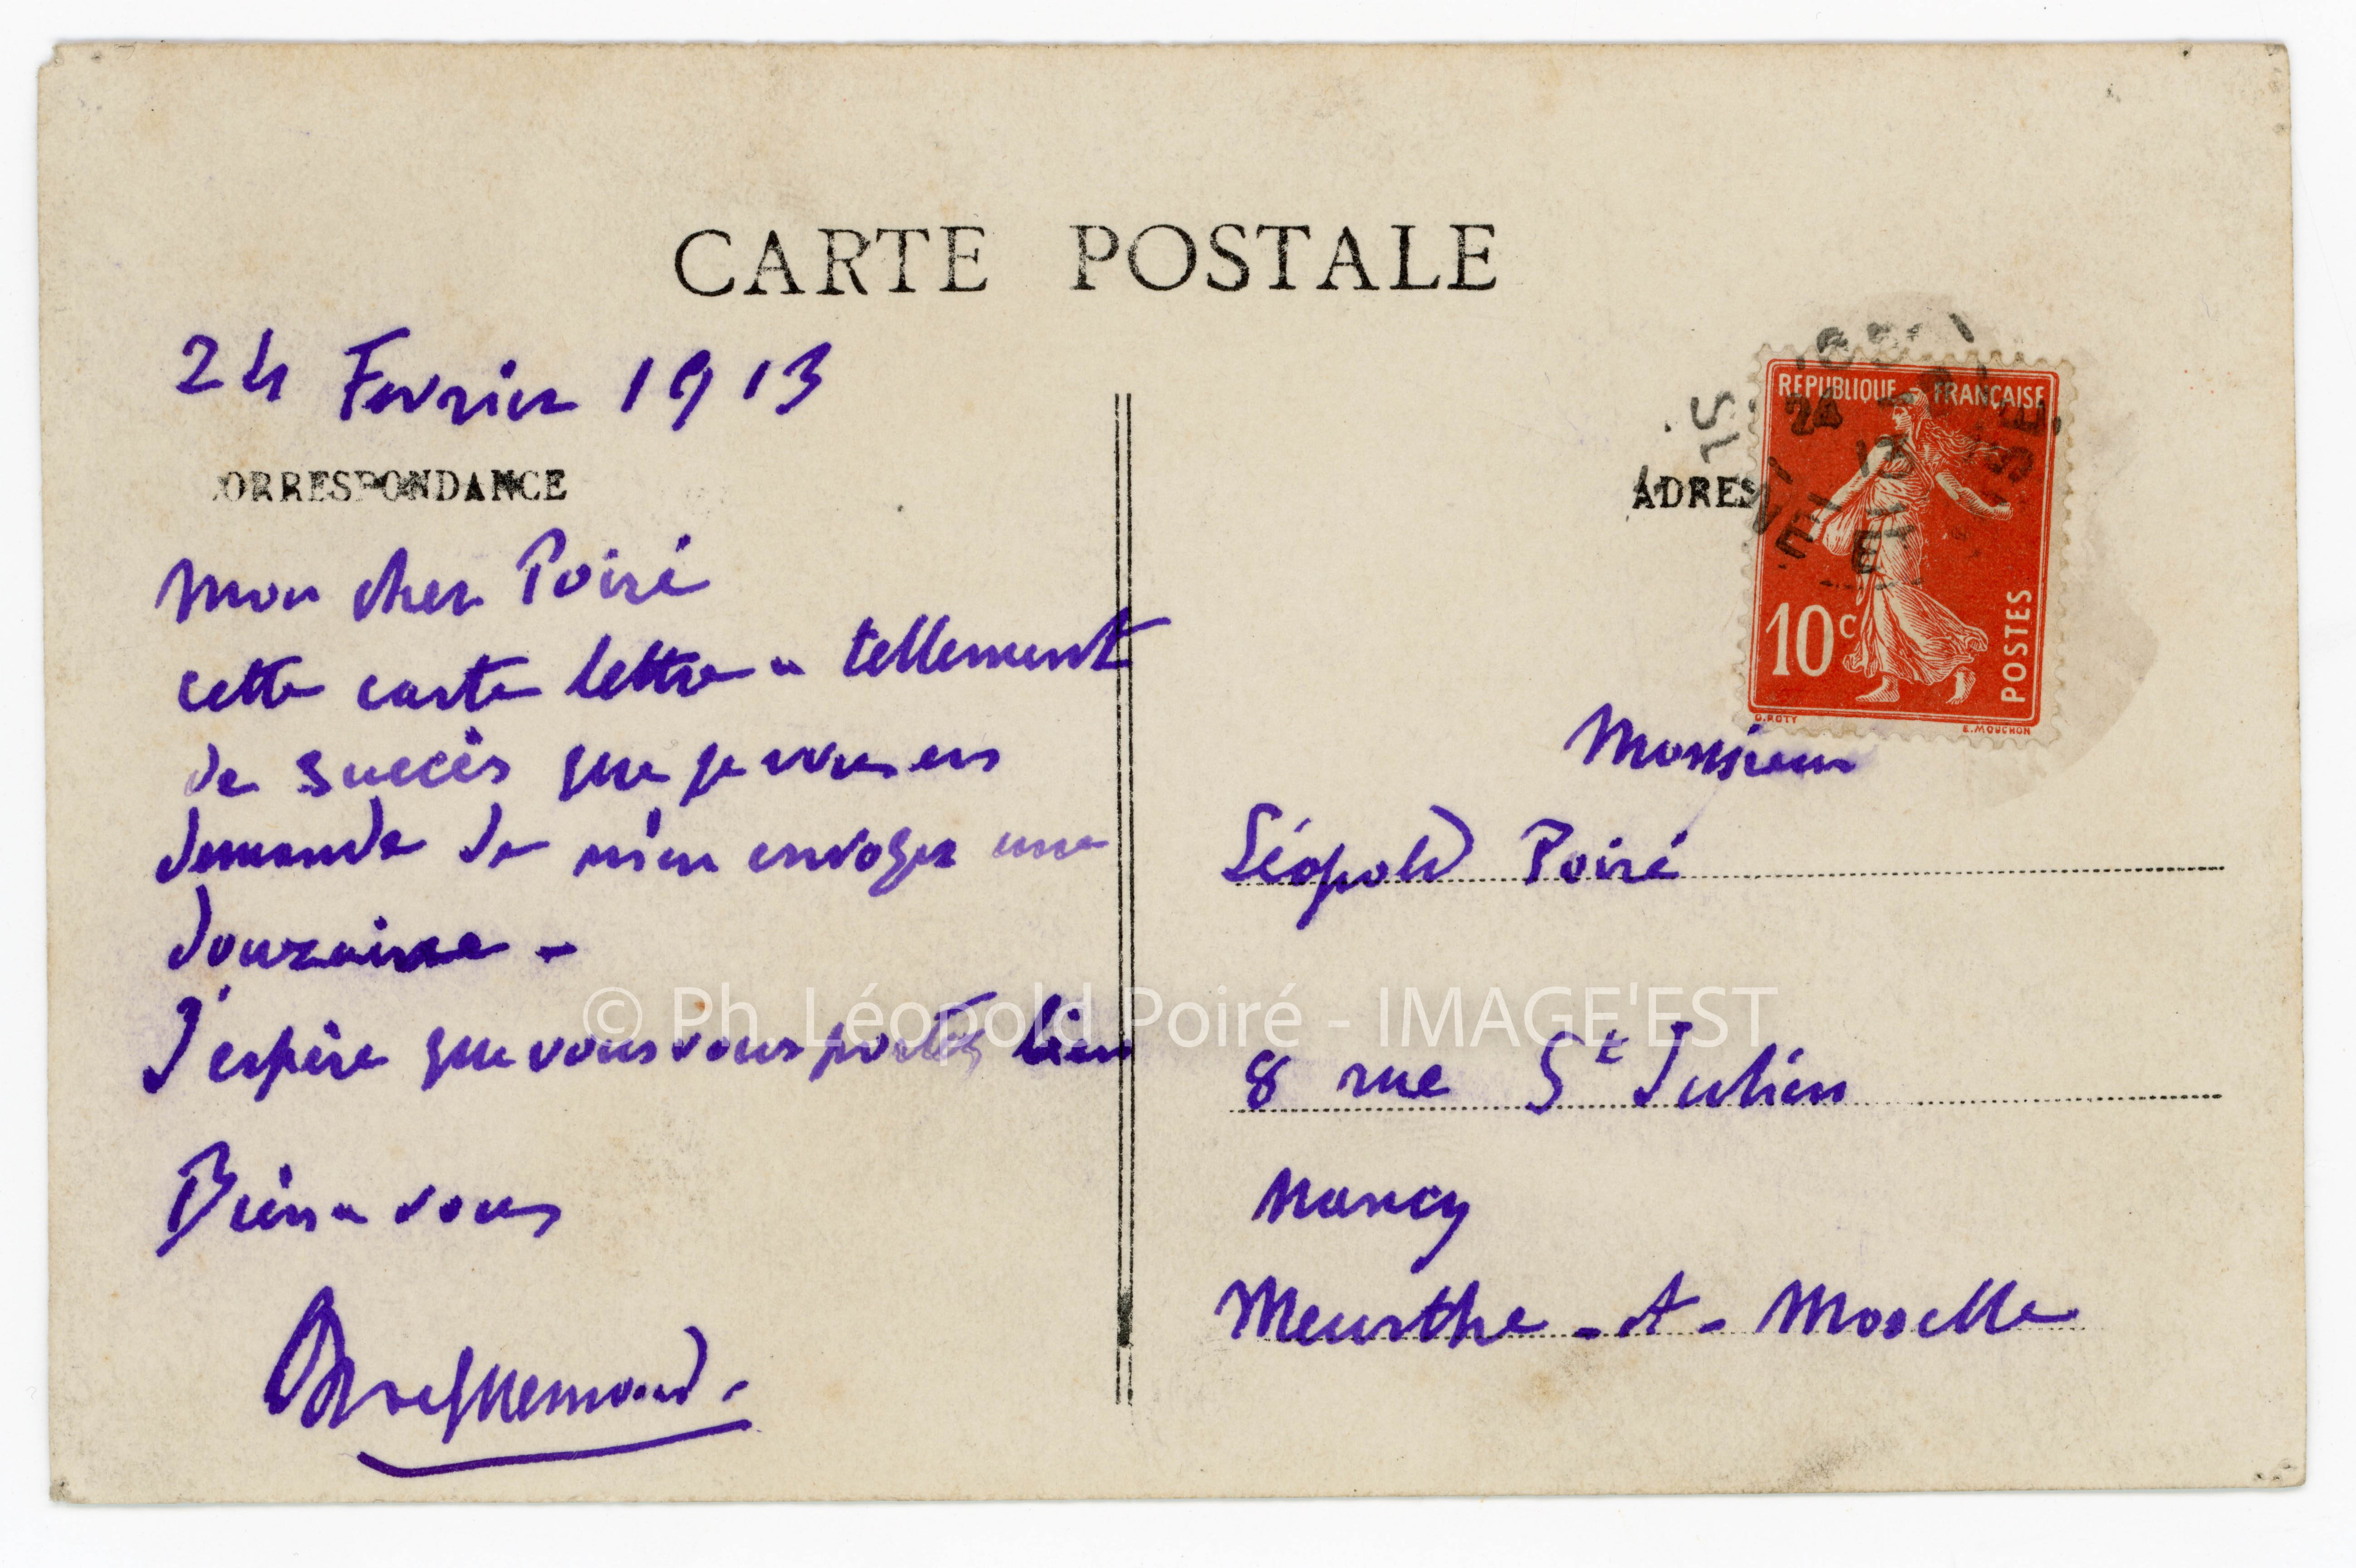 CARTE POSTALE
24 Fevrier 1913
ORRESPONDANCE
Mon cher Poiré
cette carte lettre a tellement
de succès que je vous en
demande de m'en envoyer une
douzaine -
J'espère que vous vous portez bien
Bien a vous
ADRES
REPUBLIQUE FRANÇAISE
24
13
10c
POSTES
O. ROTY
E. MOUCHON
Monsieur
Léopold Poiré
8 rue St Julien
Nancy
Meurthe-et-Moselle
© Ph. Léopold Poiré - IMAGE'EST